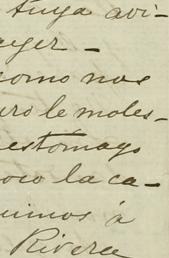 tuya avi-
ayer -
como nos
uro le moles-
estómago
oco la ca-
uimos á
Rivera